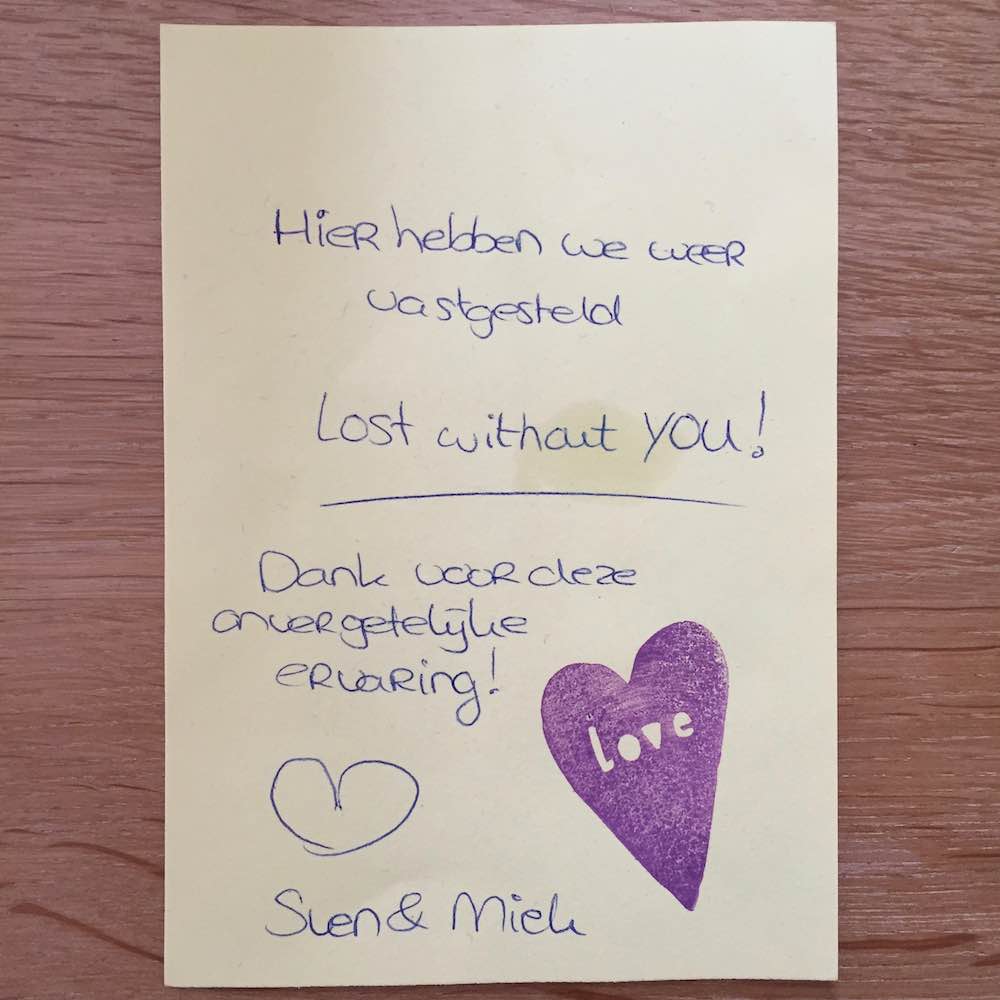 Hier hebben we weer
vastgesteld
Lost without you!
Dank voor deze
onvergetelijke
ervaring!
love
Sven & Miek